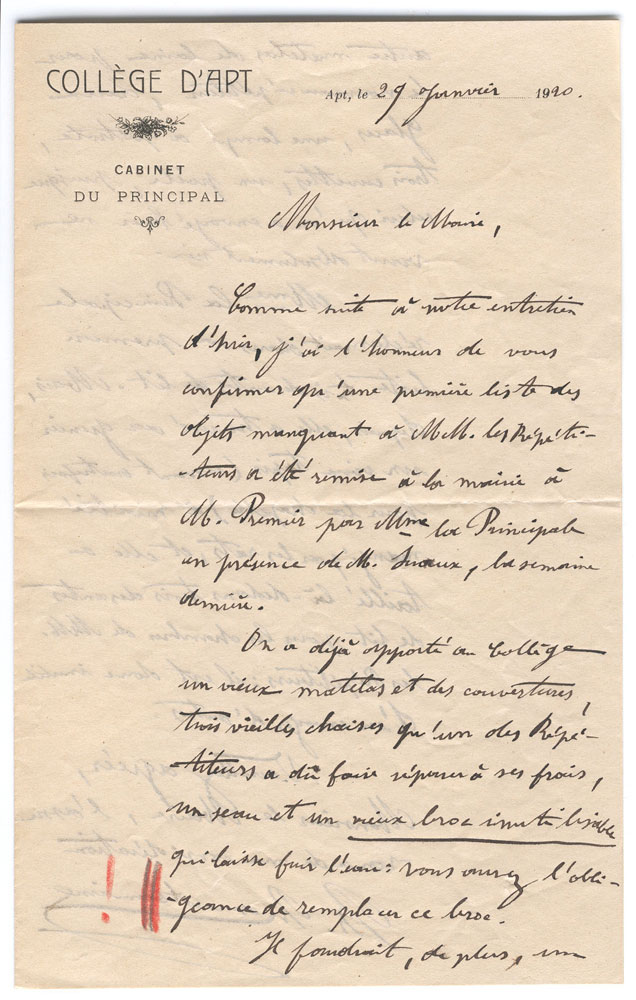 COLLÈGE D'APT
Apt, le 29 Janvier 1920.
CABINET
DU PRINCIPAL
Monsieur le Maire,
Comme suite à notre entretien
d'hier, j'ai l'honneur de vous
confirmer qu'une première liste des
objets manquant à MM. les Répéti-
-teurs a été remise à la mairie à
M. Premier par Mme la Principale
en présence de M. , la semaine
dernière.
On a déjà apporté au Collège
un vieux matelas et des couvertures,
trois vieilles chaises qu'un des Répé-
-titeurs a dû faire réparer à ses frais,
un seau et un vieux broc inutilisable
qui laisse fuir l'eau : vous aurez l'obli-
-geance de remplacer ce broc.
Il faudrait, de plus, un